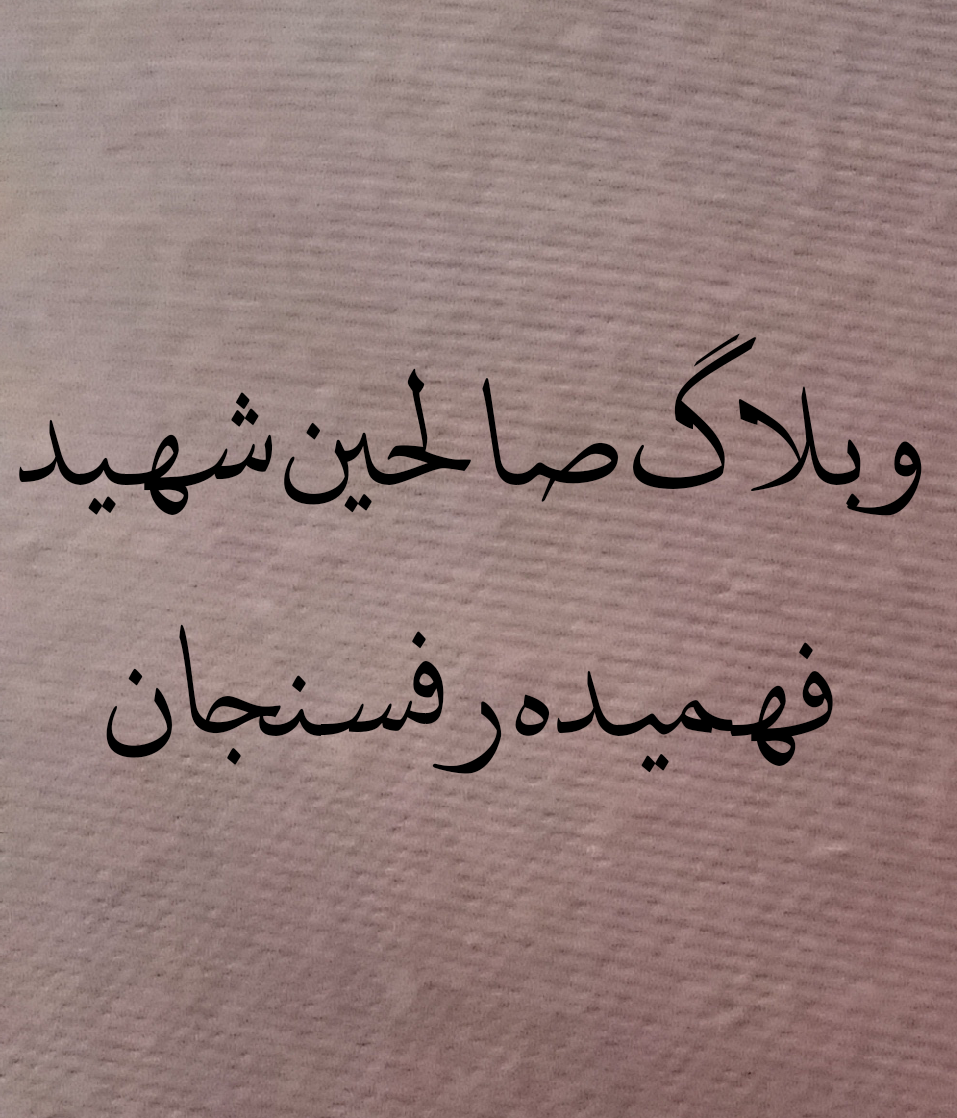 وبلاگ صالحین شهید
فهمیده رفسنجان